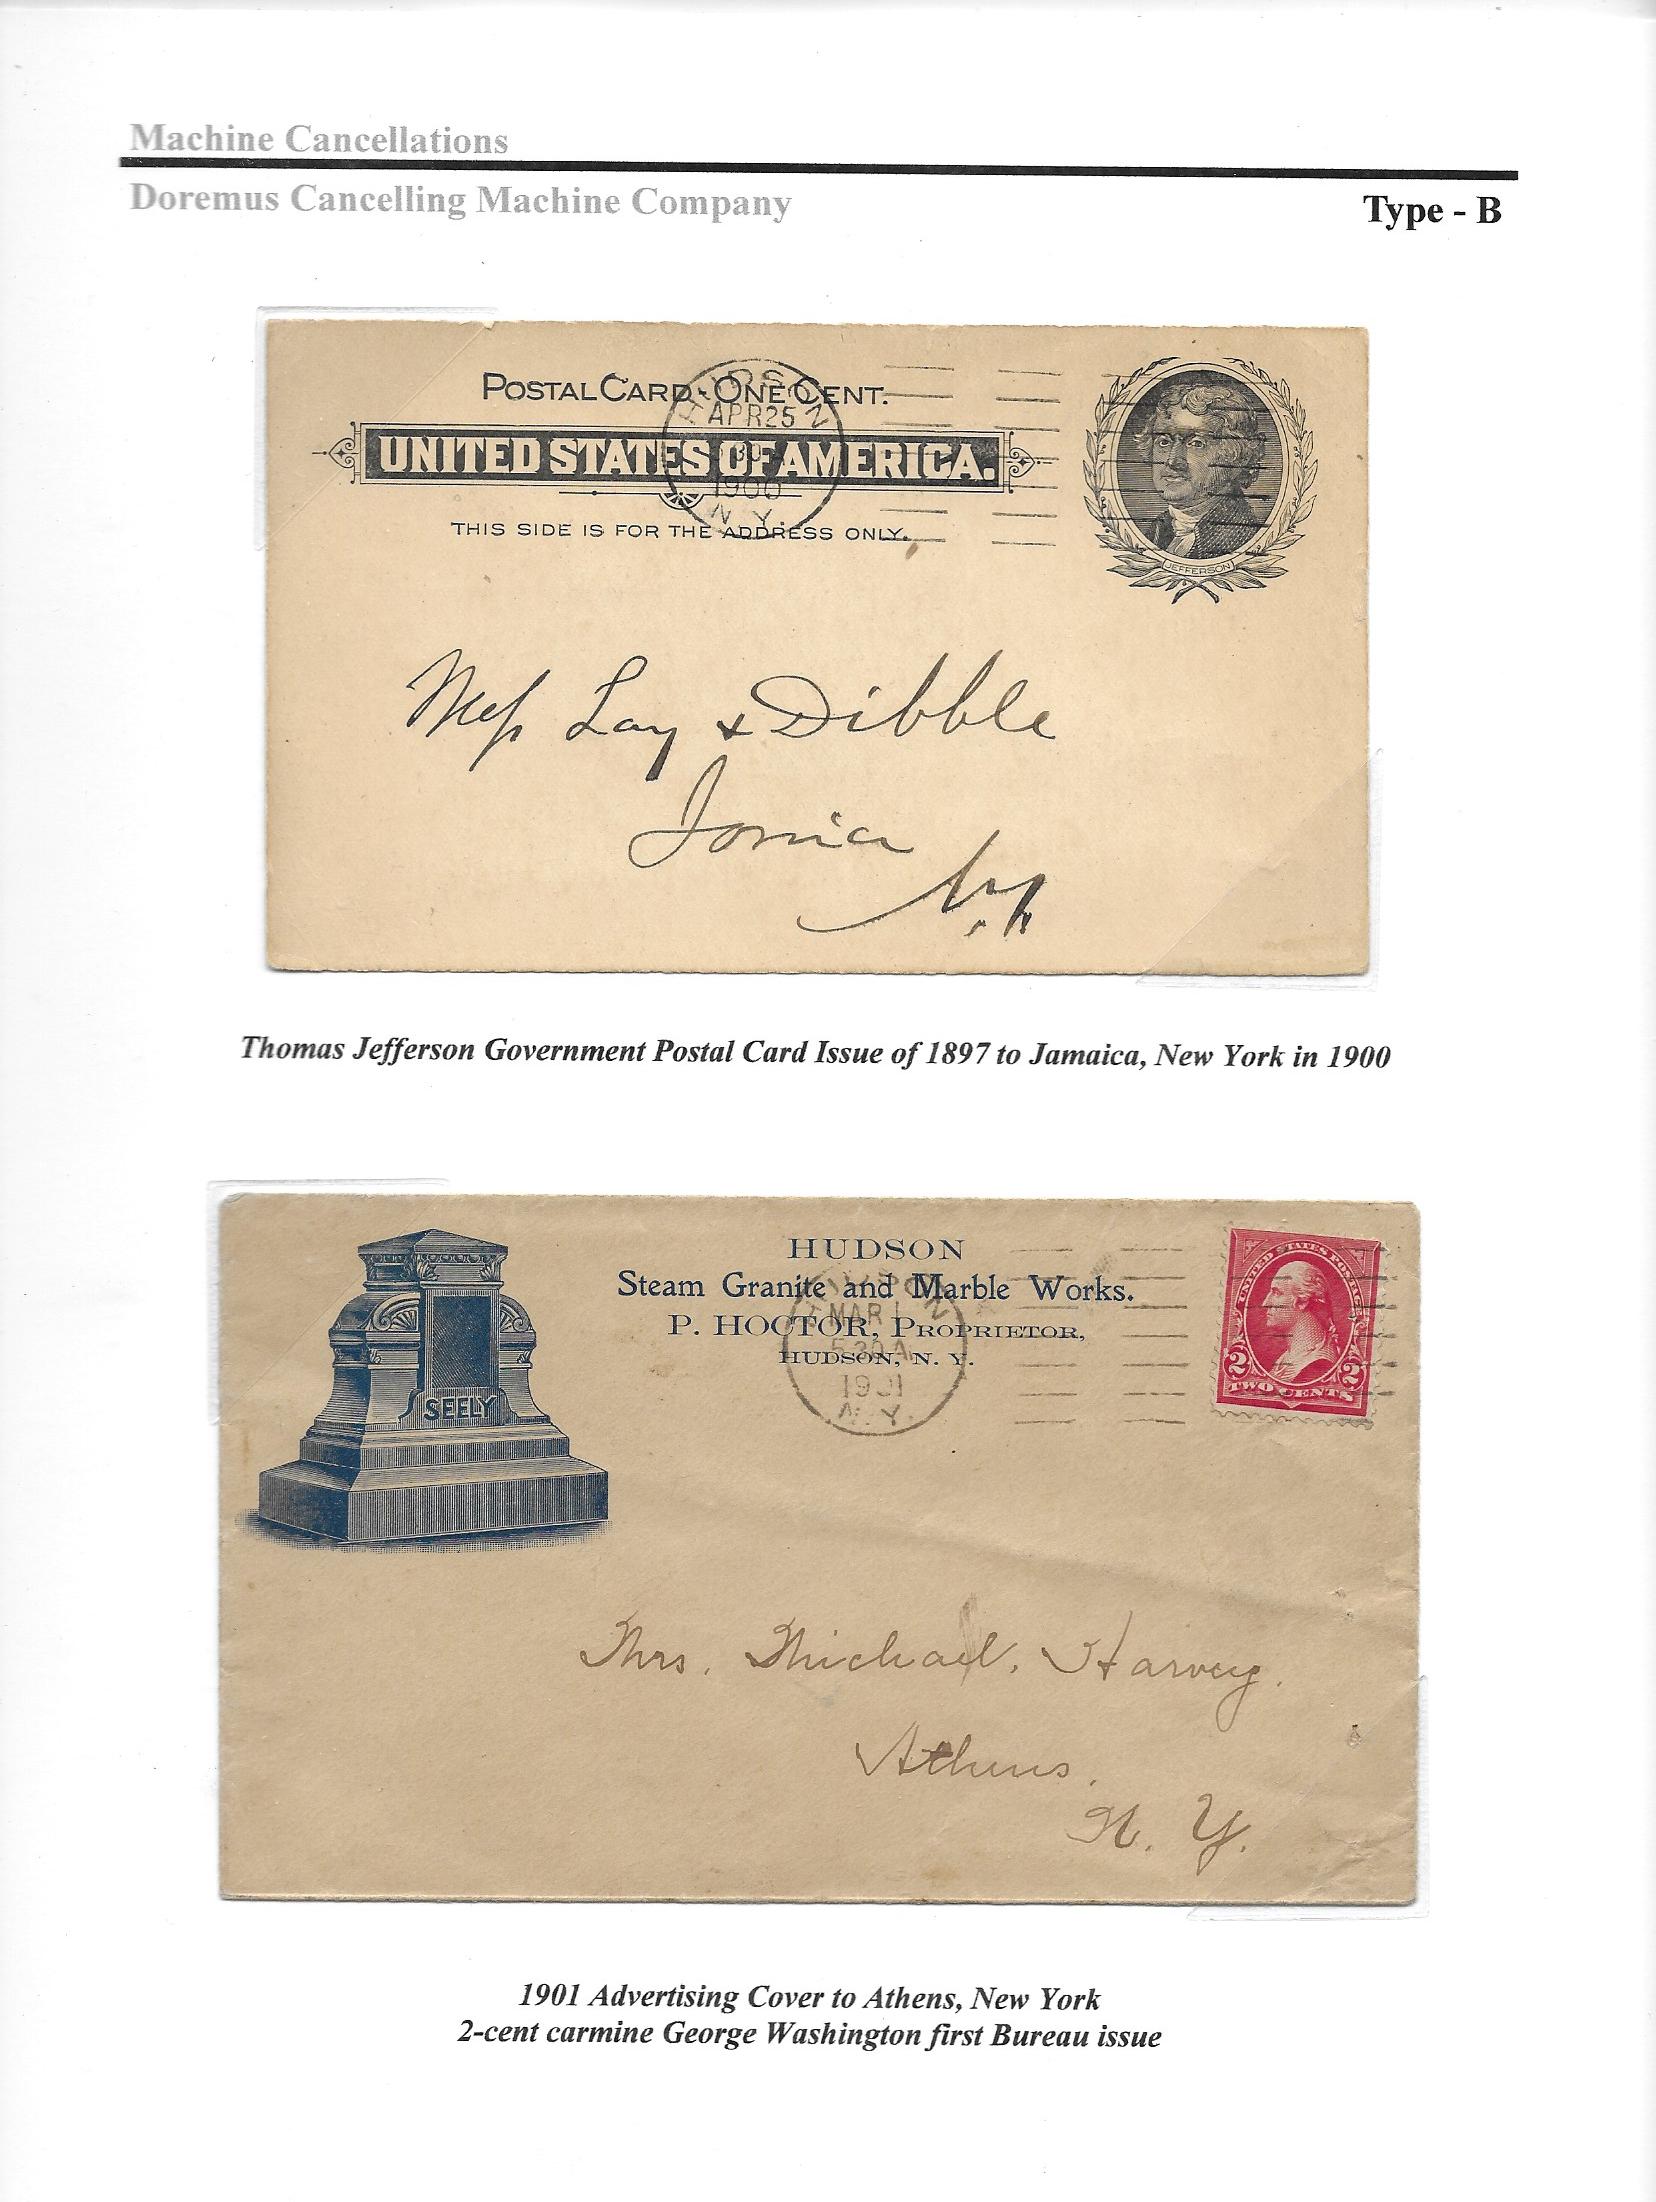 Machine Cancellations
Doremus Cancelling Machine Company
Type - B
POSTAL CARD - ONE CENT.
UNITED STATES OF AMERICA.
THIS SIDE IS FOR THE ADDRESS ONLY.
HUDSON
APR 25
30 A
1900
N. Y.
JEFFERSON
Mess Lay & Dibble
Ionia
N.Y.
Thomas Jefferson Government Postal Card Issue of 1897 to Jamaica, New York in 1900
HUDSON
Steam Granite and Marble Works.
P. HOCTOR, PROPRIETOR,
HUDSON, N. Y.
SEELY
HUDSON
MAR 1
5 30 A
1901
N. Y.
UNITED STATES POSTAGE
2 2
TWO CENTS
Mrs. Michael. Harvey.
Athens.
N. Y.
1901 Advertising Cover to Athens, New York
2-cent carmine George Washington first Bureau issue